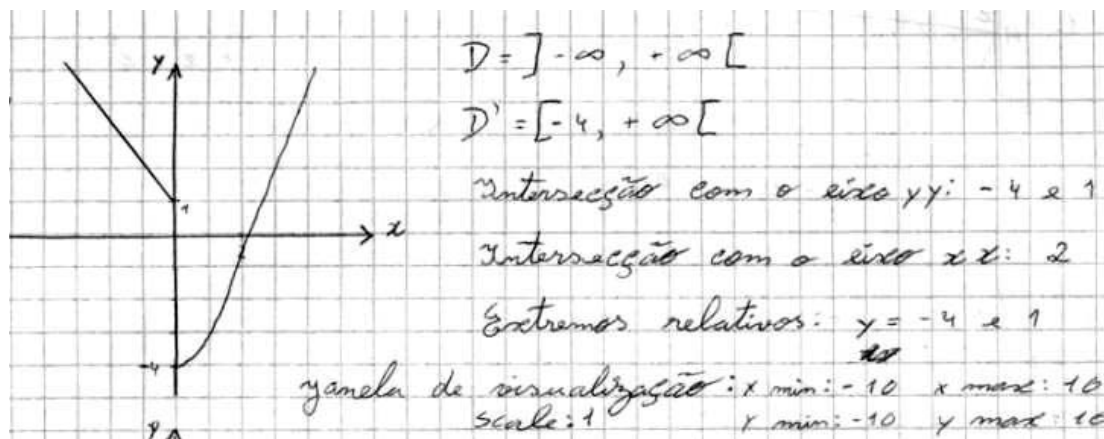 y
D = ] -∞, +∞ [
D' = [-4, +∞ [
1
Intersecção com o eixo yy: -4 e 1
x
Intersecção com o eixo xx: 2
Extremos relativos: y = -4 e 1
-4
Janela de visualização: x min: -10 x max: 10
scale: 1 y min: -10 y max: 10
y